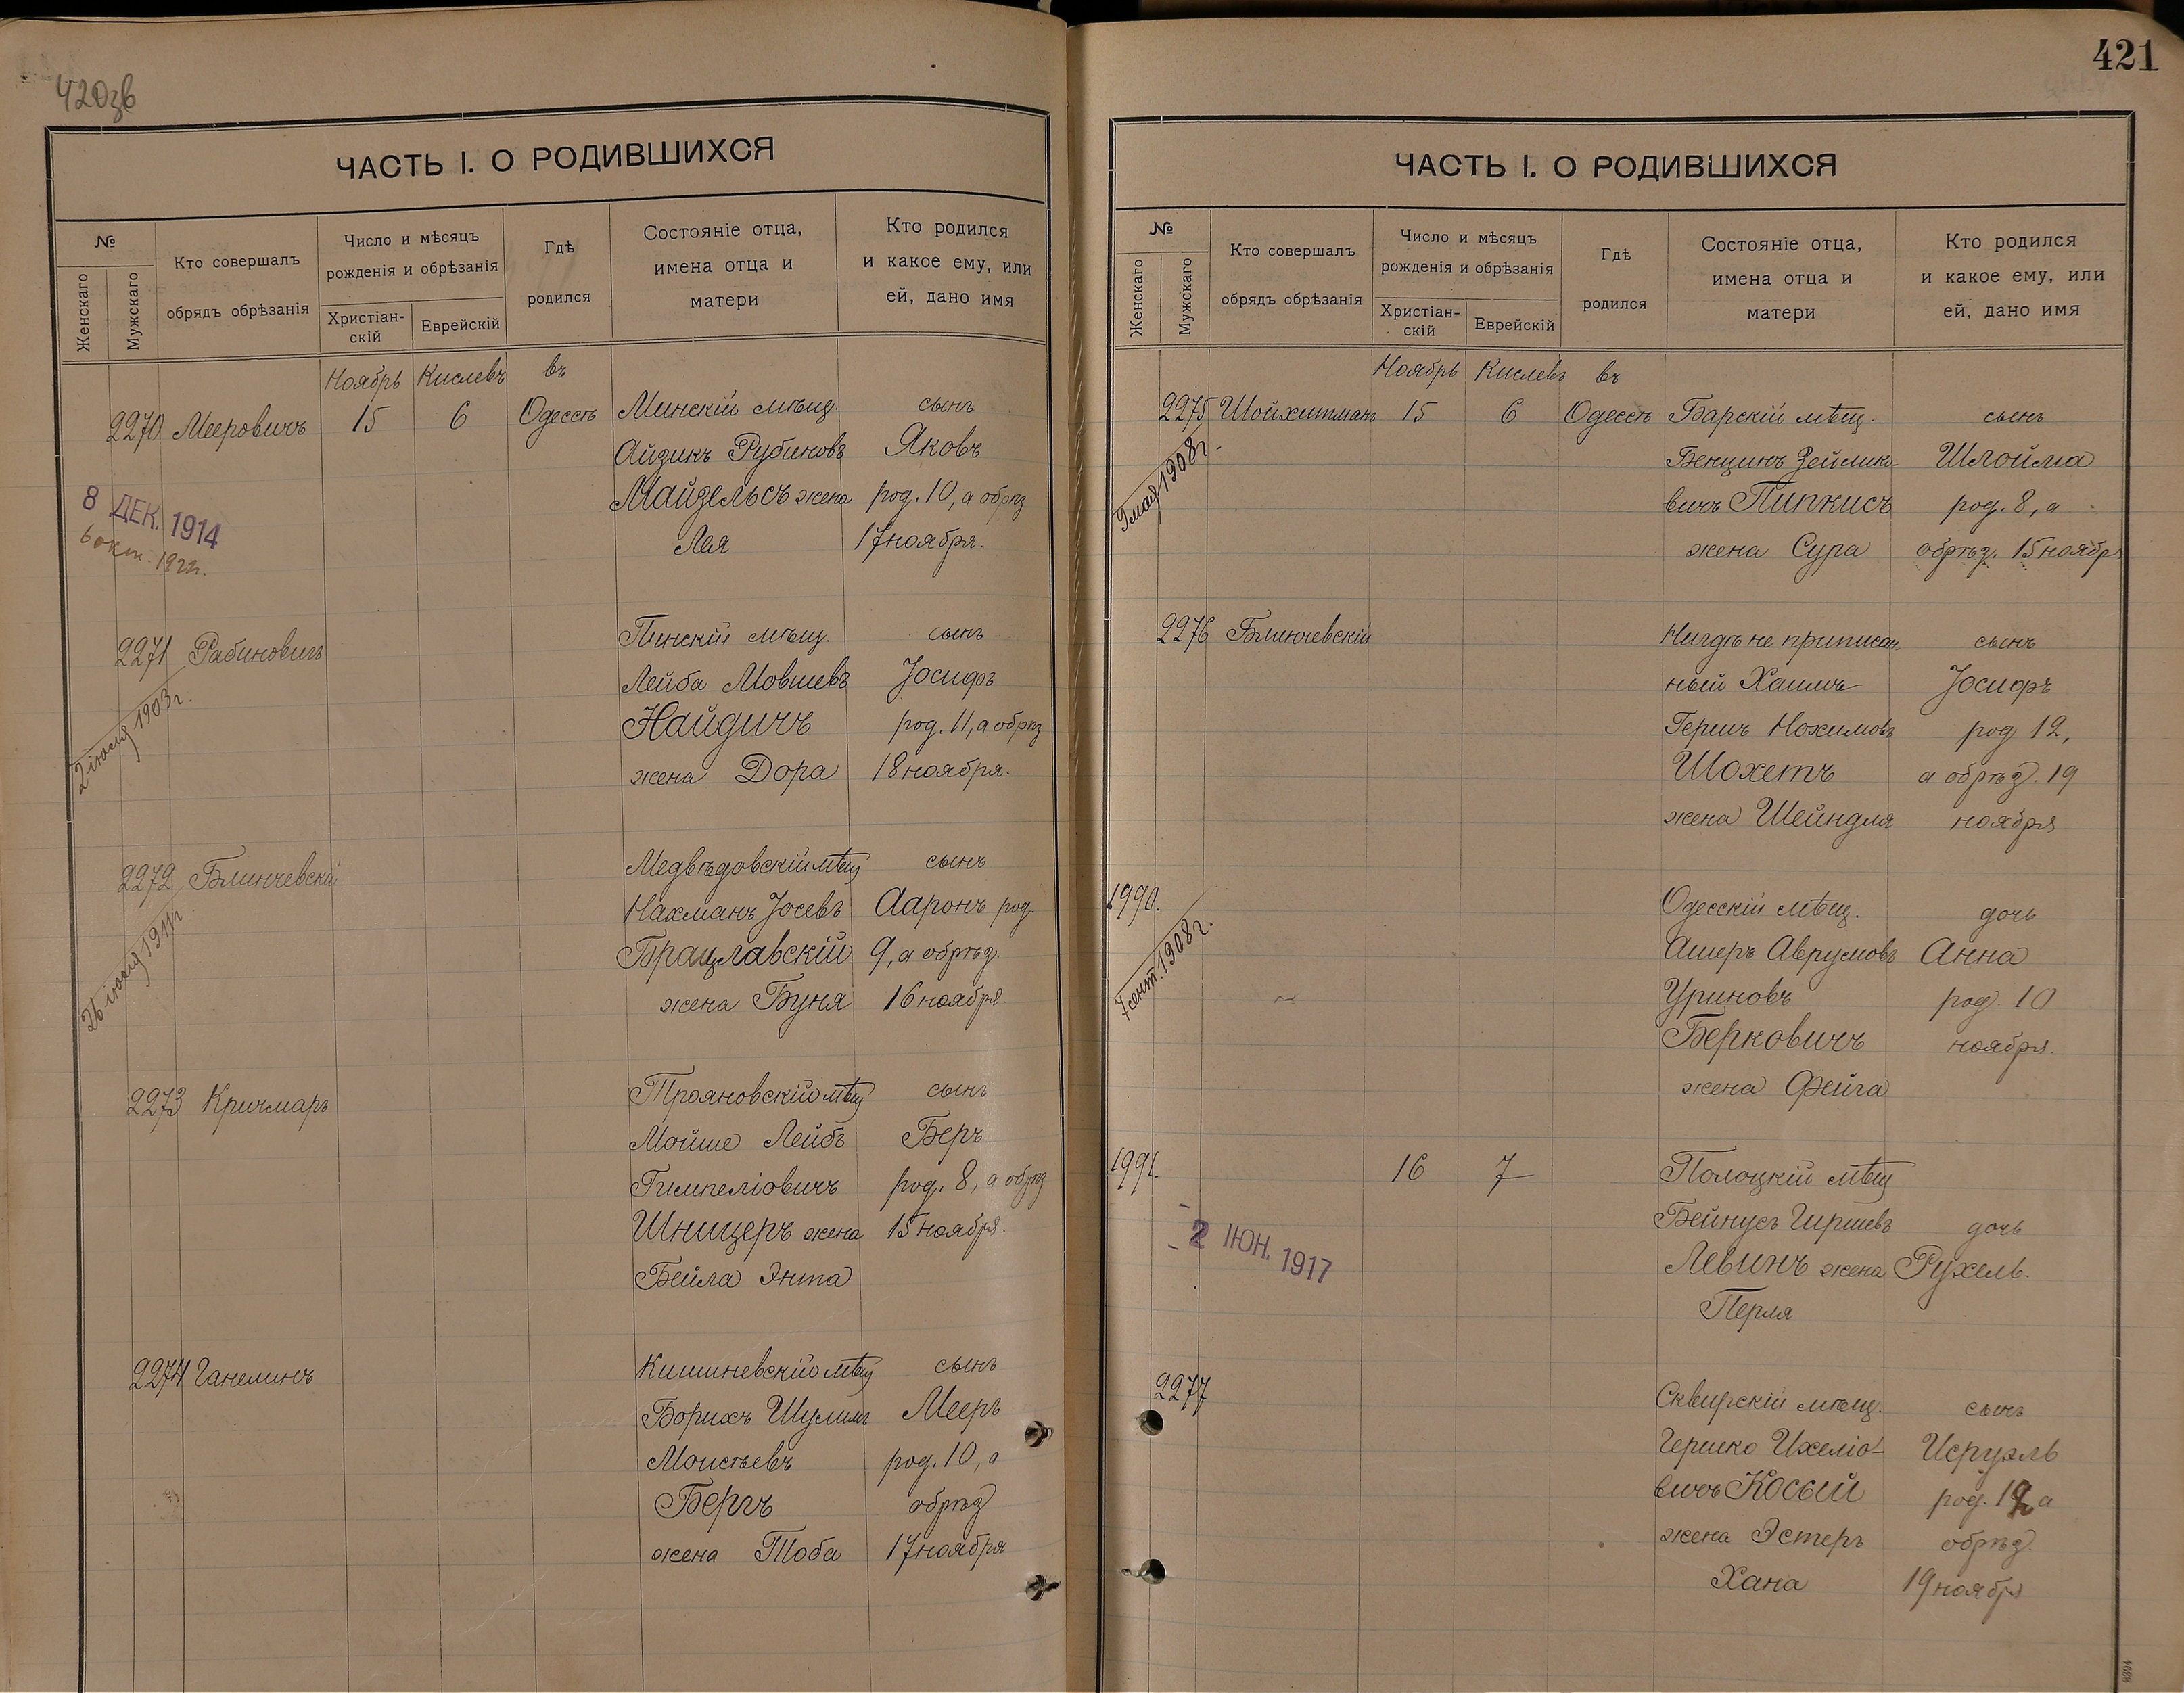 420зв
ЧАСТЬ I. О РОДИВШИХСЯ
№
Женскаго
Мужскаго
Кто совершалъ
обрядъ обрѣзанія
Число и мѣсяцъ
рожденія и обрѣзанія
Христіан-
скій
Еврейскій
Гдѣ
родился
Состояніе отца,
имена отца и
матери
Кто родился
и какое ему, или
ей, дано имя
Ноябрь Кислевъ въ
2270 Мееровичъ 15 6 Одессѣ Минскій мѣщ. сынъ
Айзикъ Рубиновъ Яковъ
Майзельсъ жена род. 10, а обрѣз
Лея 17 ноября.
8 ДЕК. 1914
6 окт. 1922г.
2271 Рабиновичъ Пинскій мѣщ. сынъ
Лейба Мовшевъ Іосифъ
Найдичъ род. 11, а обрѣз
жена Дора 18 ноября.
2 іюля 1903 г.
2272 Блинчевскій Медвѣдовскій мѣщ сынъ
Нахманъ Іосевъ Ааронъ род.
Брацлавскій 9, а обрѣз.
жена Буня 16 ноября.
26 іюля 1911 г
2273 Кричмаръ Трояновскій мѣщ сынъ
Мойше Лейбъ Беръ
Гимпеліовичъ род. 8, а обрѣз
Шницеръ жена 15 ноября.
Бейла Энта
2274 Ганелинъ Кишиневскій мѣщ сынъ
Борихъ Шулимъ Мееръ
Моисѣевъ род. 10, а
Бергъ обрѣз
жена Тоба 17 ноября
421
ЧАСТЬ I. О РОДИВШИХСЯ
№
Женскаго
Мужскаго
Кто совершалъ
обрядъ обрѣзанія
Число и мѣсяцъ
рожденія и обрѣзанія
Христіан-
скій
Еврейскій
Гдѣ
родился
Состояніе отца,
имена отца и
матери
Кто родился
и какое ему, или
ей, дано имя
Ноябрь Кислевъ въ
2275 Шойхитманъ 15 6 Одессѣ Барскій мѣщ. сынъ
Бенционъ Зейлико- Шлойма
вичъ Пипкисъ род. 8, а
жена Сура обрѣз. 15 ноябр
9 мая 1908 г.
2276 Блинчевскій Нигдѣ не приписан- сынъ
ный Хаимъ Іосифъ
Гершъ Нохимовъ род 12,
Шохетъ а обрѣз. 19
жена Шейндля ноября
1990. Одесскій мѣщ. дочь
Ашеръ Аврумовъ Анна
Уриновъ род. 10
Берковичъ ноября.
жена Фейга
7 сент. 1908 г.
1991. 16 7 Полоцкій мѣщ
Бейнусъ Гиршевъ дочь
Левинъ жена Рухель.
Перля
2 ІЮН. 1917
2277 Сквирскій мѣщ. сынъ
Гершко Ихеліо- Исруэль
вичъ Косый род. 12 а
жена Эстеръ обрѣз.
Хана 19 ноября